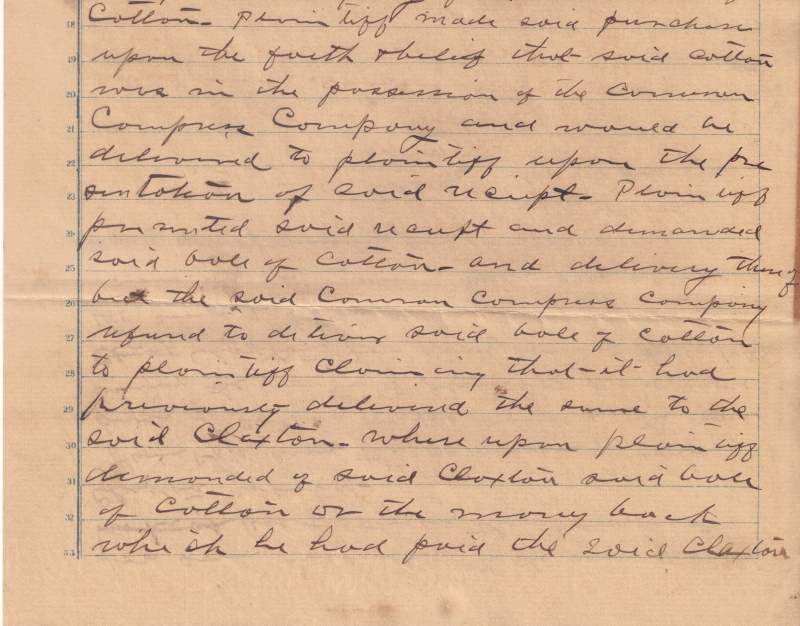 18 Cotton - Plaintiff made said purchase
19 upon the faith & belief that said cotton
20 was in the possession of the Cameron
21 Compress Company and would be
22 delivered to plaintiff upon the pre
23 sentation of said reciept - Plaintiff
24 presented said reciept and demanded
25 said bale of cotton - and delivery there of
26 but the said Cameron Compress Company
27 refused to deliver said bale of cotton
28 to plaintiff claiming that it had
29 previously delivered the same to the
30 said Claxton - where upon plaintiff
31 demanded of said Claxton said bale
32 of cotton or the money back
33 which he had paid the said Claxton